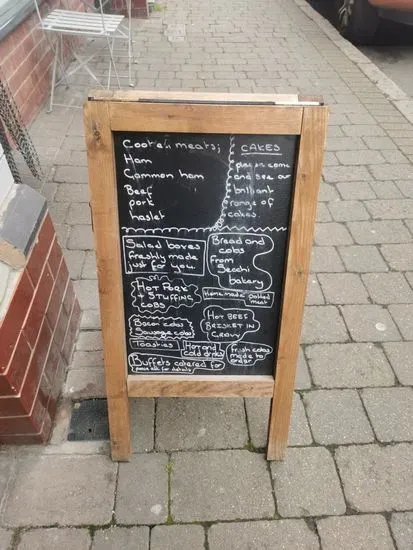 Cooken meats;
Ham
Gammon ham
Beef
pork
haslet
CAKES
please come
and see our
brilliant
range of
cakes.
Salad boxes
freshly made
just for you.
Bread and
cobs
from
Secchi
bakery
HOT PORK
+ STUFFING
COBS
Home made potted
meat
HOT BEEF
BRISKET IN
GRAVY
Bacon cobs
Sausage cobs
Toasties
Hot and
cold drinks
fresh cobs
made to
order
Buffets catered for
please ask for details